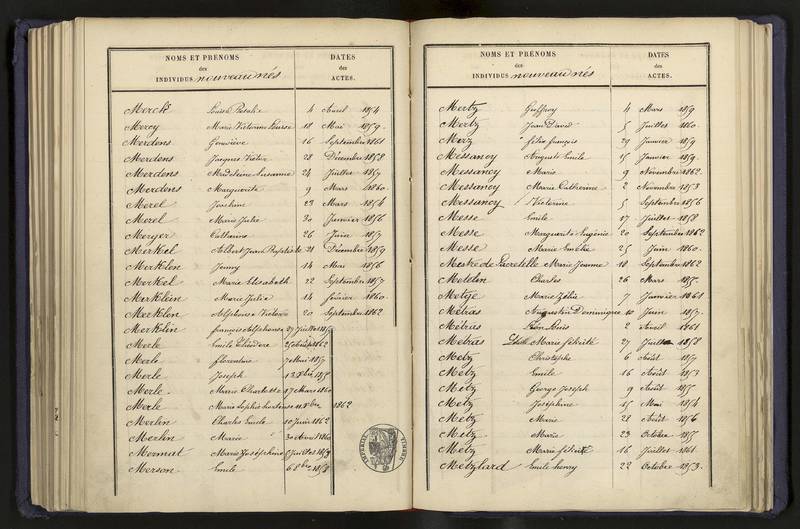 NOMS ET PRÉNOMS
des
INDIVIDUS nouveau nés
DATES
des
ACTES.
Merck Louise Rosalie 4 Avril 1854
Mercy Marie Victorine Louise 18 Mai 1859
Merdens Geneviève 16 Septembre 1861
Merdens Jacques Victor 28 Décembre 1858
Merdens Madeleine Susanne 24 Juillet 1859
Merdens Marguerite 9 Mars 1860
Merel Joachim 23 Mars 1854
Merel Marie Julie 30 Janvier 1856
Merger Catherine 26 Juin 1857
Merkel Albert Jean Baptiste 21 Décembre 1859
Merklen Jenny 14 Mai 1856
Merkel Marie Elisabeth 22 Septembre 1857
Merklein Marie Julie 14 février 1860
Merklen Alphonse Victor 20 Septembre 1862
Merklin françois Alphonse 27 Juillet
Merle Emile Théodore 1862
Merle florentine 7 Mai 1857
Merle Joseph 1855
Merle Marie Charlotte 17 Mars 1860
Merle Marie Sophie hortense 11 8bre 1862
Merlin Charles Emile 10 Juin 1862
Merlin Marie 30 Avril 1860
Mermat Marie Joséphine Juillet 1859
Merson Emile 6 8bre 1858
NOMS ET PRÉNOMS
des
INDIVIDUS nouveau nés
DATES
des
ACTES.
Mertz Geffroy 4 Mars 1859
Mertz Jean David 5 Juillet 1860
Merz félix françois 29 Janvier 1859
Messancy Auguste Emile 15 Janvier 1859
Messancy Marie 9 Novembre 1862
Messancy Marie Catherine 2 Novembre 1853
Messancy Victorine 5 Septembre 1856
Messe Emile 17 Juillet 1858
Messe Marguerite Eugénie 20 Septembre 1862
Messe Marie Emélie 25 Juin 1860
Mestre de Lacretelle Marie Jeanne 18 Septembre 1862
Metelen Charles 26 Mars 1855
Metge Marie Zélie 7 Janvier 1861
Métras Augustin Dominique 10 Juin 1857
Métras Léon Louis 2 Avril 1861
Métras Marie félicité 27 Juillet 1858
Metz Christophe 6 Août 1857
Metz Emile 16 Août 1853
Metz George Joseph 9 Août 1855
Metz Joséphine 15 Mai 1854
Metz Marie 28 Août 1856
Metz Marie 23 Octobre 1855
Metz Marie félicité 16 Juillet 1861
Metzlard Emile henry 22 Octobre 1853